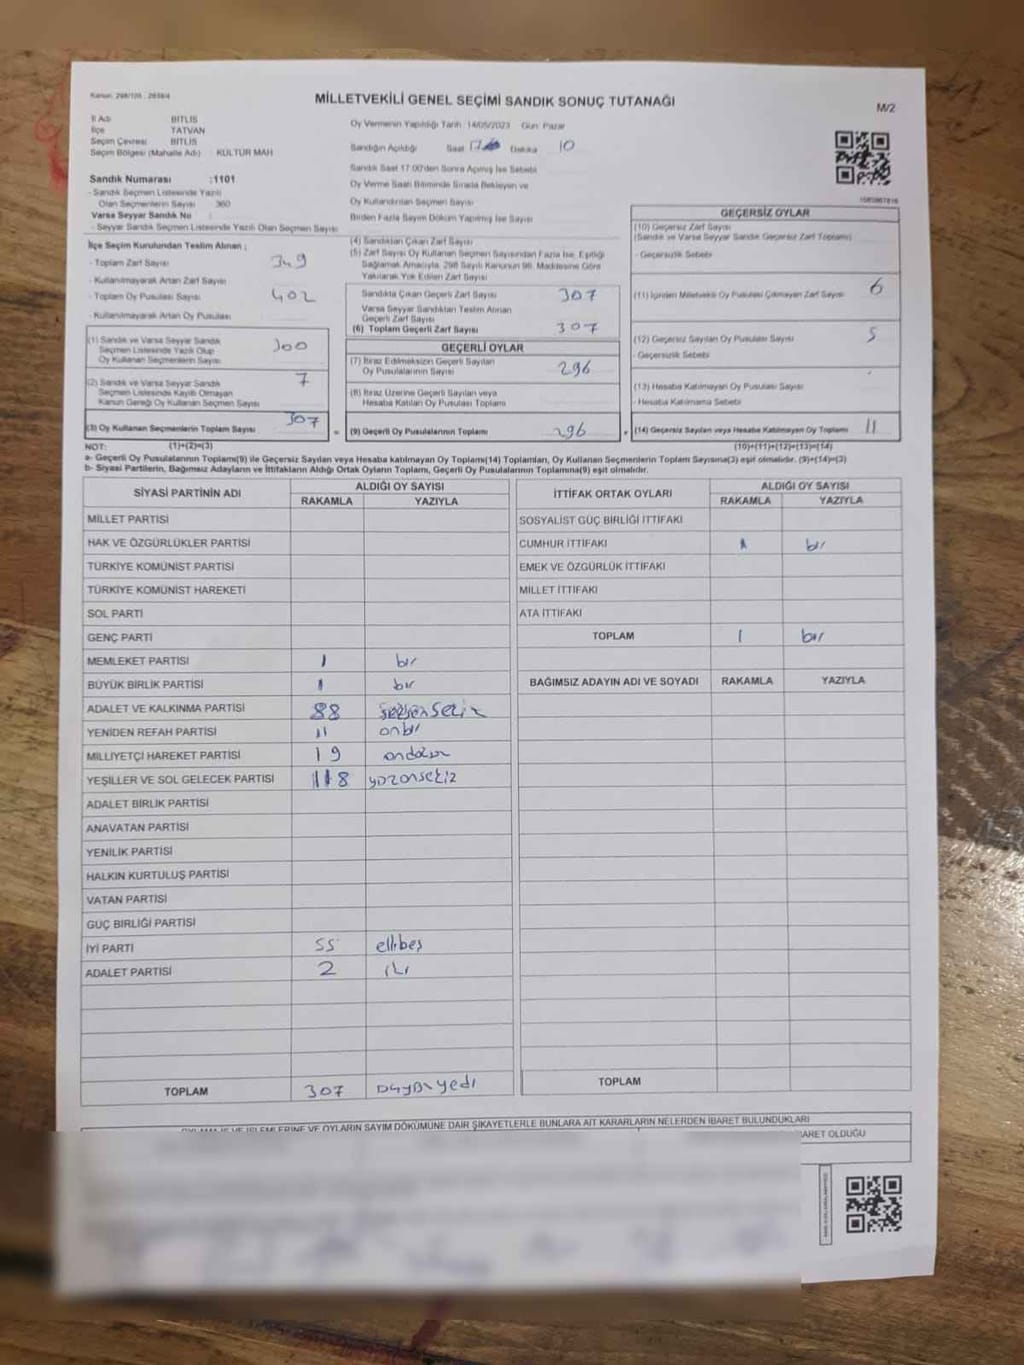 Kanun: 298/105 , 2839/4
MİLLETVEKİLİ GENEL SEÇİMİ SANDIK SONUÇ TUTANAĞI
M/2
İl Adı BİTLİS
İlçe TATVAN
Seçim Çevresi BİTLİS
Seçim Bölgesi (Mahalle Adı) : KÜLTÜR MAH
Sandık Numarası :1101
- Sandık Seçmen Listesinde Yazılı
Olan Seçmenlerin Sayısı 360
Varsa Seyyar Sandık No :
- Seyyar Sandık Seçmen Listesinde Yazılı Olan Seçmen Sayısı
Oy Vermenin Yapıldığı Tarih: 14/05/2023 Gün: Pazar
Sandığın Açıldığı Saat 17 Dakika 10
Sandık Saat 17:00'den Sonra Açılmış İse Sebebi
Oy Verme Saati Bitiminde Sırada Bekleyen ve
Oy Kullandırılan Seçmen Sayısı
Birden Fazla Sayım Döküm Yapılmış İse Sayısı
İlçe Seçim Kurulundan Teslim Alınan ;
- Toplam Zarf Sayısı 349
- Kullanılmayarak Artan Zarf Sayısı
- Toplam Oy Pusulası Sayısı 402
- Kullanılmayarak Artan Oy Pusulası
(1) Sandık ve Varsa Seyyar Sandık
Seçmen Listesinde Yazılı Olup
Oy Kullanan Seçmenlerin Sayısı 300
(2) Sandık ve Varsa Seyyar Sandık
Seçmen Listesinde Kayıtlı Olmayan
Kanun Gereği Oy Kullanan Seçmen Sayısı 7
(3) Oy Kullanan Seçmenlerin Toplam Sayısı 307
(4) Sandıktan Çıkan Zarf Sayısı
(5) Zarf Sayısı Oy Kullanan Seçmen Sayısından Fazla İse, Eşitliği
Sağlamak Amacıyla, 298 Sayılı Kanunun 98. Maddesine Göre
Yakılarak Yok Edilen Zarf Sayısı
Sandıkta Çıkan Geçerli Zarf Sayısı 307
Varsa Seyyar Sandıktan Teslim Alınan
Geçerli Zarf Sayısı
(6) Toplam Geçerli Zarf Sayısı 307
GEÇERLİ OYLAR
(7) İtiraz Edilmeksizin Geçerli Sayılan
Oy Pusulalarının Sayısı 296
(8) İtiraz Üzerine Geçerli Sayılan veya
Hesaba Katılan Oy Pusulası Toplamı
= (9) Geçerli Oy Pusulalarının Toplamı 296
GEÇERSİZ OYLAR
(10) Geçersiz Zarf Sayısı
(Sandık ve Varsa Seyyar Sandık Geçersiz Zarf Toplamı)
- Geçersizlik Sebebi
(11) İçinden Milletvekili Oy Pusulası Çıkmayan Zarf Sayısı 6
(12) Geçersiz Sayılan Oy Pusulası Sayısı 5
- Geçersizlik Sebebi
(13) Hesaba Katılmayan Oy Pusulası Sayısı
- Hesaba Katılmama Sebebi
+ (14) Geçersiz Sayılan veya Hesaba Katılmayan Oy Toplamı 11
NOT: (1)+(2)=(3) (10)+(11)+(12)+(13)=(14)
a- Geçerli Oy Pusulalarının Toplamı(9) ile Geçersiz Sayılan veya Hesaba katılmayan Oy Toplamı(14) Toplamları, Oy Kullanan Seçmenlerin Toplam Sayısına(3) eşit olmalıdır. (9)+(14)=(3)
b- Siyasi Partilerin, Bağımsız Adayların ve İttifakların Aldığı Ortak Oyların Toplamı, Geçerli Oy Pusulalarının Toplamına(9) eşit olmalıdır.
SİYASİ PARTİNİN ADI ALDIĞI OY SAYISI
RAKAMLA YAZIYLA
MİLLET PARTİSİ
HAK VE ÖZGÜRLÜKLER PARTİSİ
TÜRKİYE KOMÜNİST PARTİSİ
TÜRKİYE KOMÜNİST HAREKETİ
SOL PARTİ
GENÇ PARTİ
MEMLEKET PARTİSİ 1 bir
BÜYÜK BİRLİK PARTİSİ 1 bir
ADALET VE KALKINMA PARTİSİ 88 seksensekiz
YENİDEN REFAH PARTİSİ 11 onbir
MİLLİYETÇİ HAREKET PARTİSİ 19 ondokuz
YEŞİLLER VE SOL GELECEK PARTİSİ 118 yüzonsekiz
ADALET BİRLİK PARTİSİ
ANAVATAN PARTİSİ
YENİLİK PARTİSİ
HALKIN KURTULUŞ PARTİSİ
VATAN PARTİSİ
GÜÇ BİRLİĞİ PARTİSİ
İYİ PARTİ 55 ellibeş
ADALET PARTİSİ 2 iki
TOPLAM 307
İTTİFAK ORTAK OYLARI ALDIĞI OY SAYISI
RAKAMLA YAZIYLA
SOSYALİST GÜÇ BİRLİĞİ İTTİFAKI
CUMHUR İTTİFAKI 1 bir
EMEK VE ÖZGÜRLÜK İTTİFAKI
MİLLET İTTİFAKI
ATA İTTİFAKI
TOPLAM 1 bir
BAĞIMSIZ ADAYIN ADI VE SOYADI RAKAMLA YAZIYLA
TOPLAM
İŞLEMLERİNE VE OYLARIN SAYIM DÖKÜMÜNE DAİR ŞİKAYETLERLE BUNLARA AİT KARARLARIN NELERDEN İBARET BULUNDUKLARI
İBARET OLDUĞU